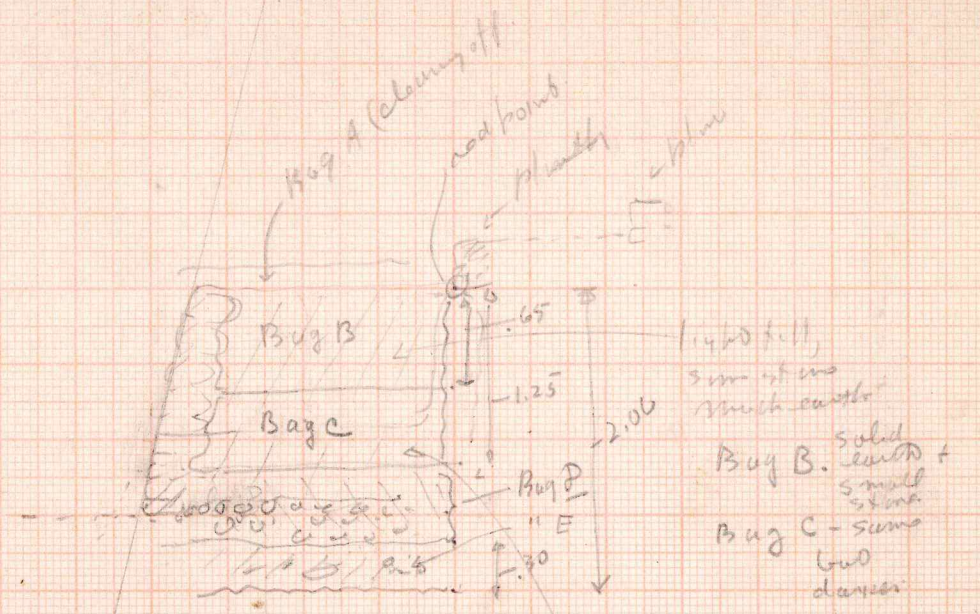 Bag A (cleaning off
red point
Bag B
.65
Bag C
1.25
2.00
Bag D
" E
.30
light fill,
some stone
much earth
Bag B. solid
earth +
small
stone
Bag C - same
but
darker